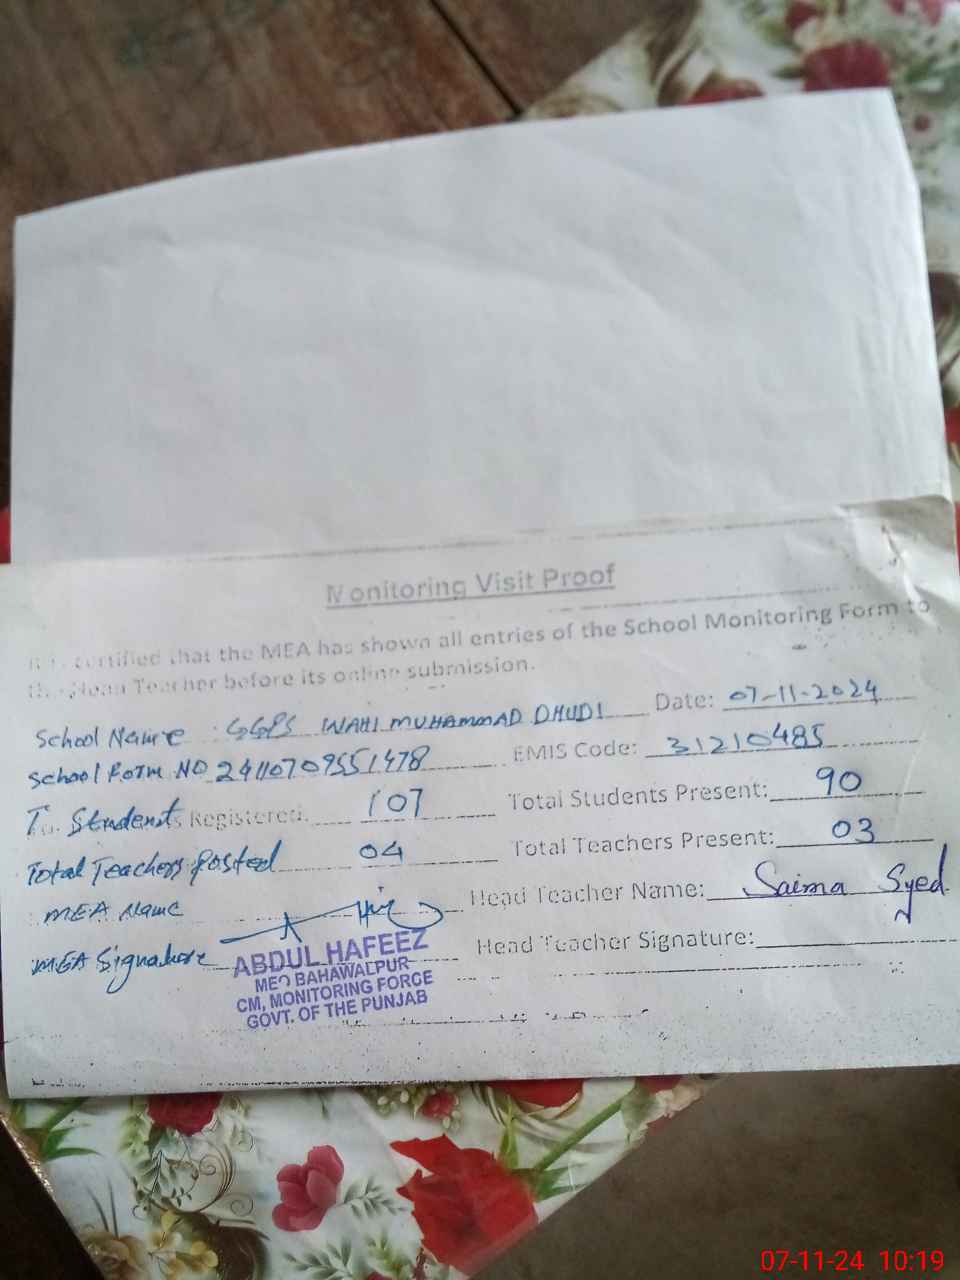 Monitoring Visit Proof
It is certified that the MEA has shown all entries of the School Monitoring Form to
the Head Teacher before its online submission.
School Name : GGPS WAHI MUHAMMAD DHUDI Date: 07-11-2024
School Form NO 24110709551478 EMIS Code: 31210485
T. Students Registered: 107 Total Students Present: 90
Total Teachers Posted 04 Total Teachers Present: 03
MEA Name Head Teacher Name: Saima Syed
MEA Signature Head Teacher Signature:
ABDUL HAFEEZ
MEO BAHAWALPUR
CM, MONITORING FORCE
GOVT. OF THE PUNJAB
07-11-24 10:19